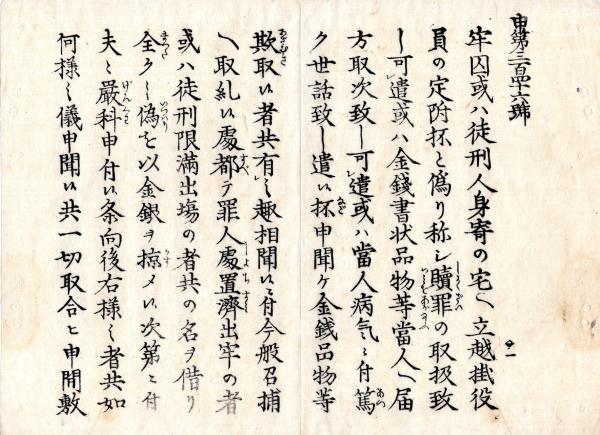 申第三百四十六號
牢囚或ハ徒刑人身寄の宅へ立越掛役
員の定附抔と僞り称シ贖罪の取扱致
し可遣或ハ金銭書状品物等當人へ届
方取次致し可遣或ハ當人病気ニ付篤
ク世話致し遣い抔申聞ケ金銭品物等
欺取い者共有之趣相聞い付今般召捕
へ取糺い處都テ罪人處置濟出牢の者
或ハ徒刑限滿出場の者共の名ヲ借り
全クし僞を以金銀ヲ掠メい次第ニ付
夫々嚴科申付い条向後右様之者共如
何様之儀申聞い共一切取合ヒ申間敷